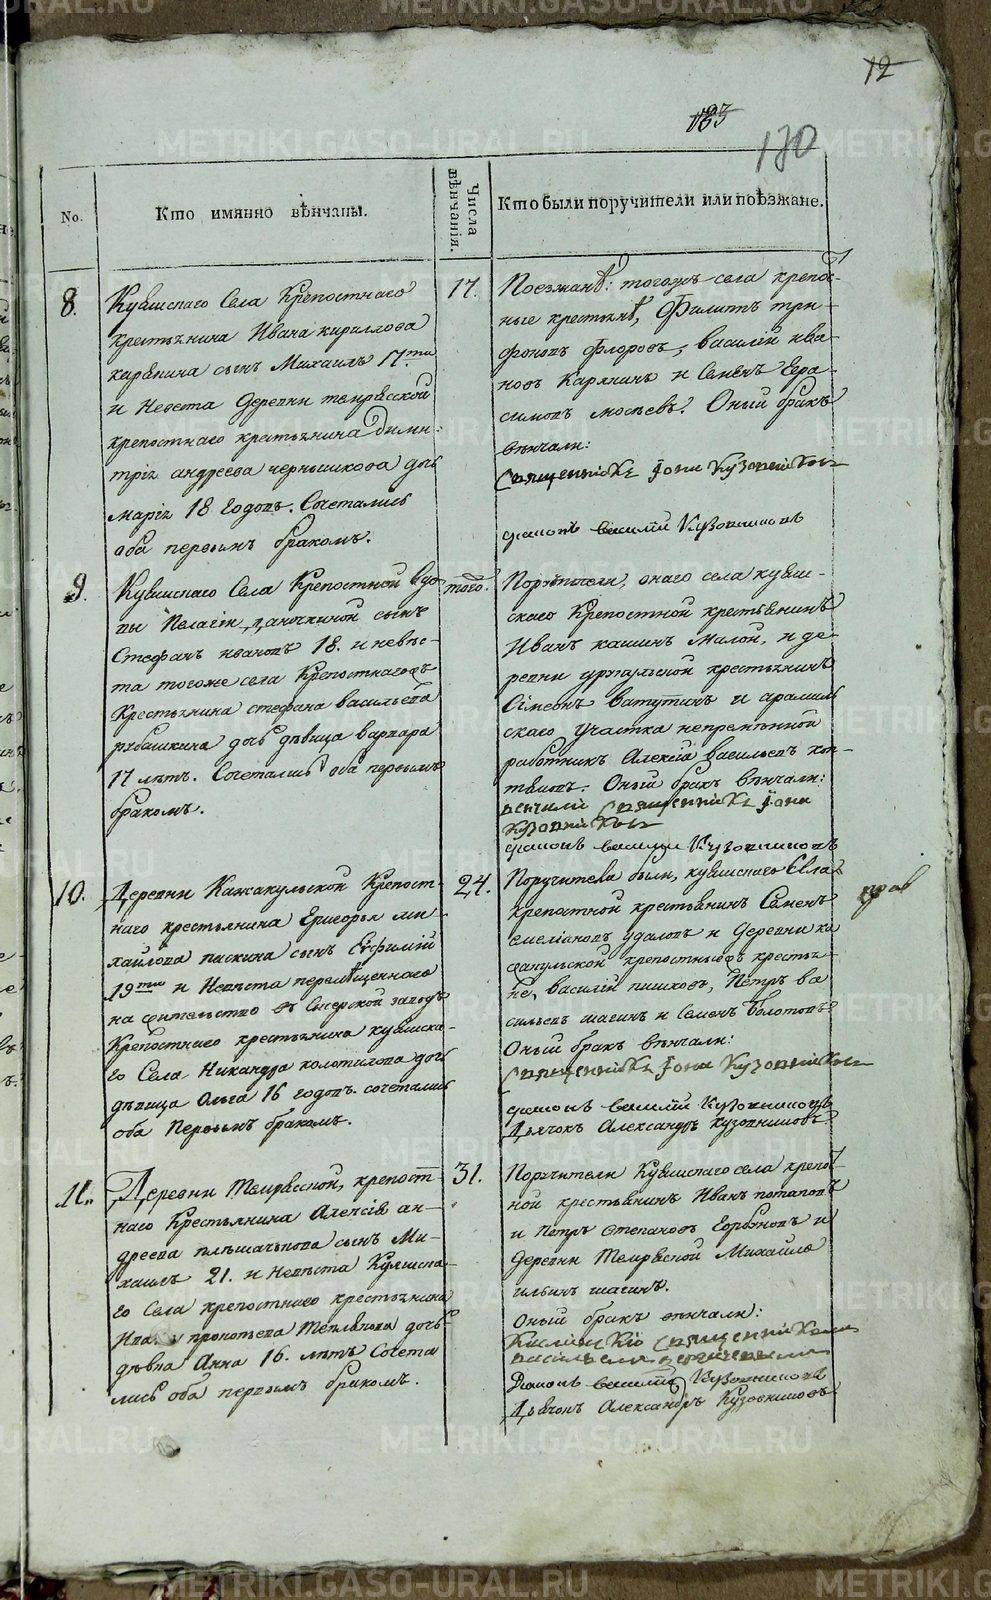 12
183
170
No.
Кто имянно вѣнчаны.
Числа вѣнчанія.
Кто были поручители или поѣзжане.
8.
Кувшискаго Села Крепостнаго
крестьянина Ивана кирилова
карѣпина сынъ Михаилъ 17ти
и Невеста Деревни темряской
крепостнаго крестьянина Дими-
трія андреева чернышкова дочь
марія 18 Годовъ. Сочетались
оба первымъ бракомъ.
17.
Поезжанѣ: тогожъ села крепос-
ные крестьянѣ, Филипъ три-
фоновъ флоровъ, василій ива-
новъ Карпинъ и Семенъ Гера-
симовъ мосѣевъ. Оный бракъ
вѣнчали:
Священникъ Іона Кузовниковъ
діаконъ василій Кузовниковъ
9.
Кувшискаго Села Крепостной вдо-
вы Пелагіи сынъ
Стефанъ ивановъ 18. и невѣс-
та тогоже села Крепостнагожъ
Крестьянина стефана васильева
рубашкина дочь дѣвица варвара
17 лѣтъ. Сочетались оба первымъ
бракомъ.
того.
Поручители, онаго села кувши-
скаго Крепостной крестьянинъ
Иванъ кашинъ малой, и де-
ревни крестьянинъ
Сімеонъ Ватутинъ и арамиль
скаго участка непремѣнной
работникъ Алексій васильевъ
Оный бракъ вѣнчали:
венчали Священникъ Іона
Кузовниковъ
діаконъ василій Кузовниковъ
10.
Деревни Кажакульской Крепост-
наго крестьянина Григорья ми-
хайлова пискина сынъ Евфимій
19ти и Невѣста перемѣщенного
на жительство въ Сысерской заводъ
Крепостнаго крестьянина кувшиска-
го Села Никандра колотилова дочь
дѣвица Ольга 16 годовъ. сочетались
оба Первымъ бракомъ.
24.
Поручители были, кувшискаго Села
крепостной крестьянинъ Семенъ
емеліановъ удаловъ и Деревни ка
жакульской крепостныежъ крестья-
не, Василій пишковъ, Петръ ва
сильевъ шагинъ и Семенъ болотовъ
Оный бракъ вѣнчали:
Священникъ Іона Кузовниковъ
діаконъ василій Кузовниковъ
Дьячокъ Александръ Кузовниковъ
11.
Деревни Темряской, крепост-
наго Крестьянина Алексія ан-
дреева сынъ Ми-
хаилъ 21. и Невѣста Кувшиска-
го Села крепостнаго крестьянина
Ива прокопьева Теплякова дочь
дѣвка Анна 16. лѣтъ Сочета
лись оба первымъ бракомъ.
31.
Поручители Кувшискаго села крепо-
ной крестьянинъ Иванъ потаповъ
и Петръ Степановъ Горбуновъ и
Деревни Темряской Михайло
ильинъ шагинъ.
Оный бракъ вѣнчали:
Священникъ
Діаконъ василій Кузовниковъ
Дьячокъ Александръ Кузовниковъ
METRIKI.GASO-URAL.RU